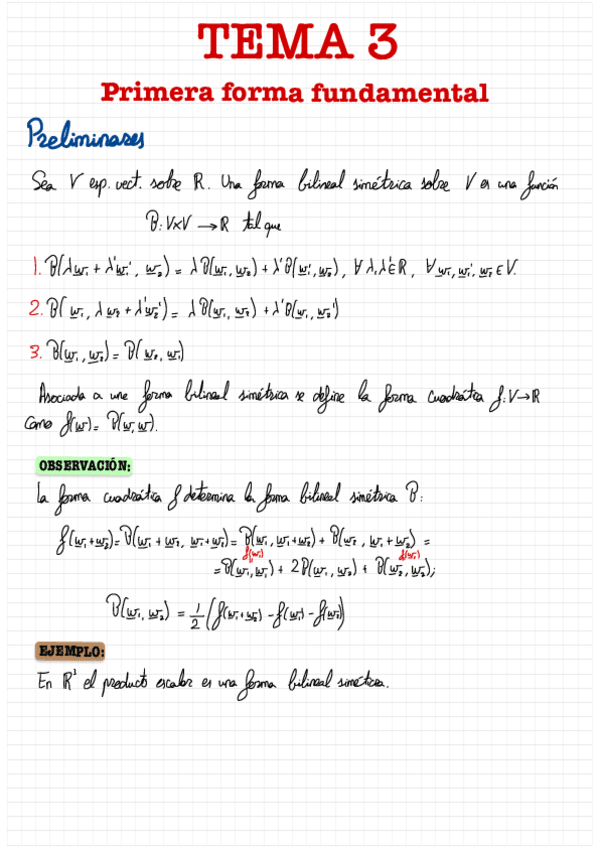 TEMA 3
Primera forma fundamental
Preliminares
Sea V esp. vect. sobre R. Una forma bilineal simétrica sobre V es una función
B: V×V → R tal que
1. B(λw₁ + λ'w₁', w₂) = λB(w₁, w₂) + λ'B(w₁', w₂), ∀ λ, λ' ∈ R, ∀ w₁, w₁', w₂ ∈ V.
2. B(w₁, λw₂ + λ'w₂') = λB(w₁, w₂) + λ'B(w₁, w₂')
3. B(w₁, w₂) = B(w₂, w₁)
Asociada a una forma bilineal simétrica se define la forma cuadrática f: V→R
como f(w) = B(w, w).
OBSERVACIÓN:
La forma cuadrática f determina la forma bilineal simétrica B:
f(w₁+w₂) = B(w₁ + w₂, w₁+w₂) = B(w₁, w₁+w₂) + B(w₂, w₁+w₂) =
f(w₁) f(w₂)
= B(w₁, w₁) + 2B(w₁, w₂) + B(w₂, w₂);
B(w₁, w₂) = 1/2 (f(w₁+w₂) - f(w₁) - f(w₂))
EJEMPLO:
En R³ el producto escalar es una forma bilineal simétrica.